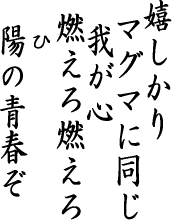 嬉しかり
マグマに同じ
我が心
燃えろ燃えろ
ひ
陽の青春ぞ